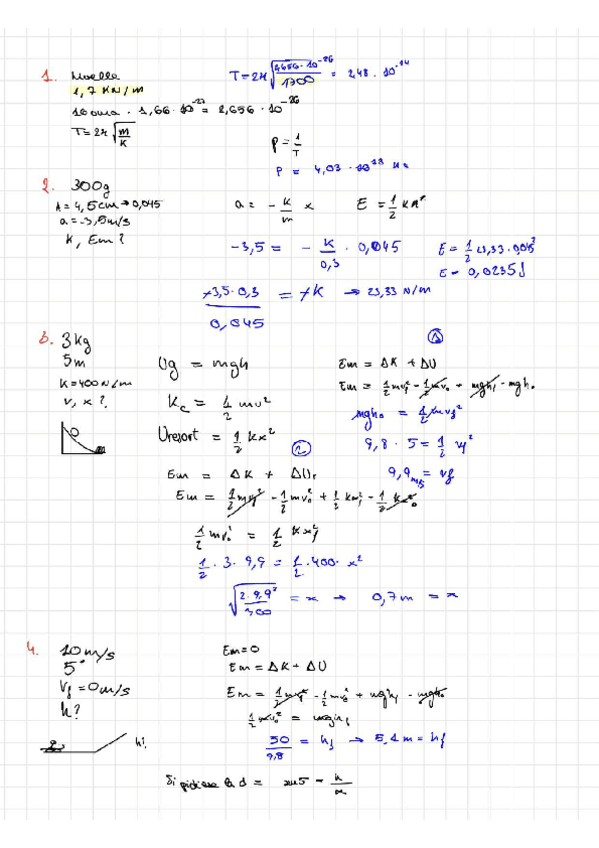 1. Muelle
1,7 KN/m
16 uma · 1,66 · 10⁻²⁷ = 2,656 · 10⁻²⁶
T = 2π √(m/K)
T = 2π √(2,656 · 10⁻²⁶ / 1700) = 2,48 · 10⁻¹⁴
P = 1/T
P = 4,03 · 10¹³ Hz
2. 300g
A = 4,5cm → 0,045
a = -3,5m/s
K, Em ?
a = - K/m x
E = 1/2 KA²
-3,5 = - K/0,3 · 0,045
E = 1/2 23,33 · 0,045²
E = 0,0235 J
-3,5 · 0,3 / 0,045 = -K → 23,33 N/m
3. 3Kg
5m
K = 400 N/m
v, x ?
Ug = mgh
Kc = 1/2 mv²
Uresort = 1/2 Kx²
①
Em = ΔK + ΔU
Em = 1/2 mvf² - 1/2 mv₀² + mghf - mgh₀
mgh₀ = 1/2 mvf²
9,8 · 5 = 1/2 vf²
9,9 m/s = vf
②
Em = ΔK + ΔUr
Em = 1/2 mvf² - 1/2 mv₀² + 1/2 Kxf² - 1/2 Kx₀²
1/2 mv₀² = 1/2 Kxf²
1/2 · 3 · 9,9 = 1/2 · 400 · x²
= x → 0,7m = x
4. 10 m/s
5°
Vf = 0m/s
h?
h?
Em = 0
Em = ΔK + ΔU
Em = 1/2 mvf² - 1/2 mv₀² + mghf - mgh₀
1/2 mv₀² = mghf
50/9,8 = hf → 5,1m = hf
Si pidiese la d = sen5 = h/x